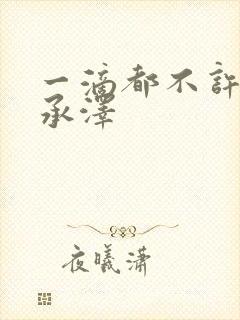 一滴都不許
承澤
夜曦潇